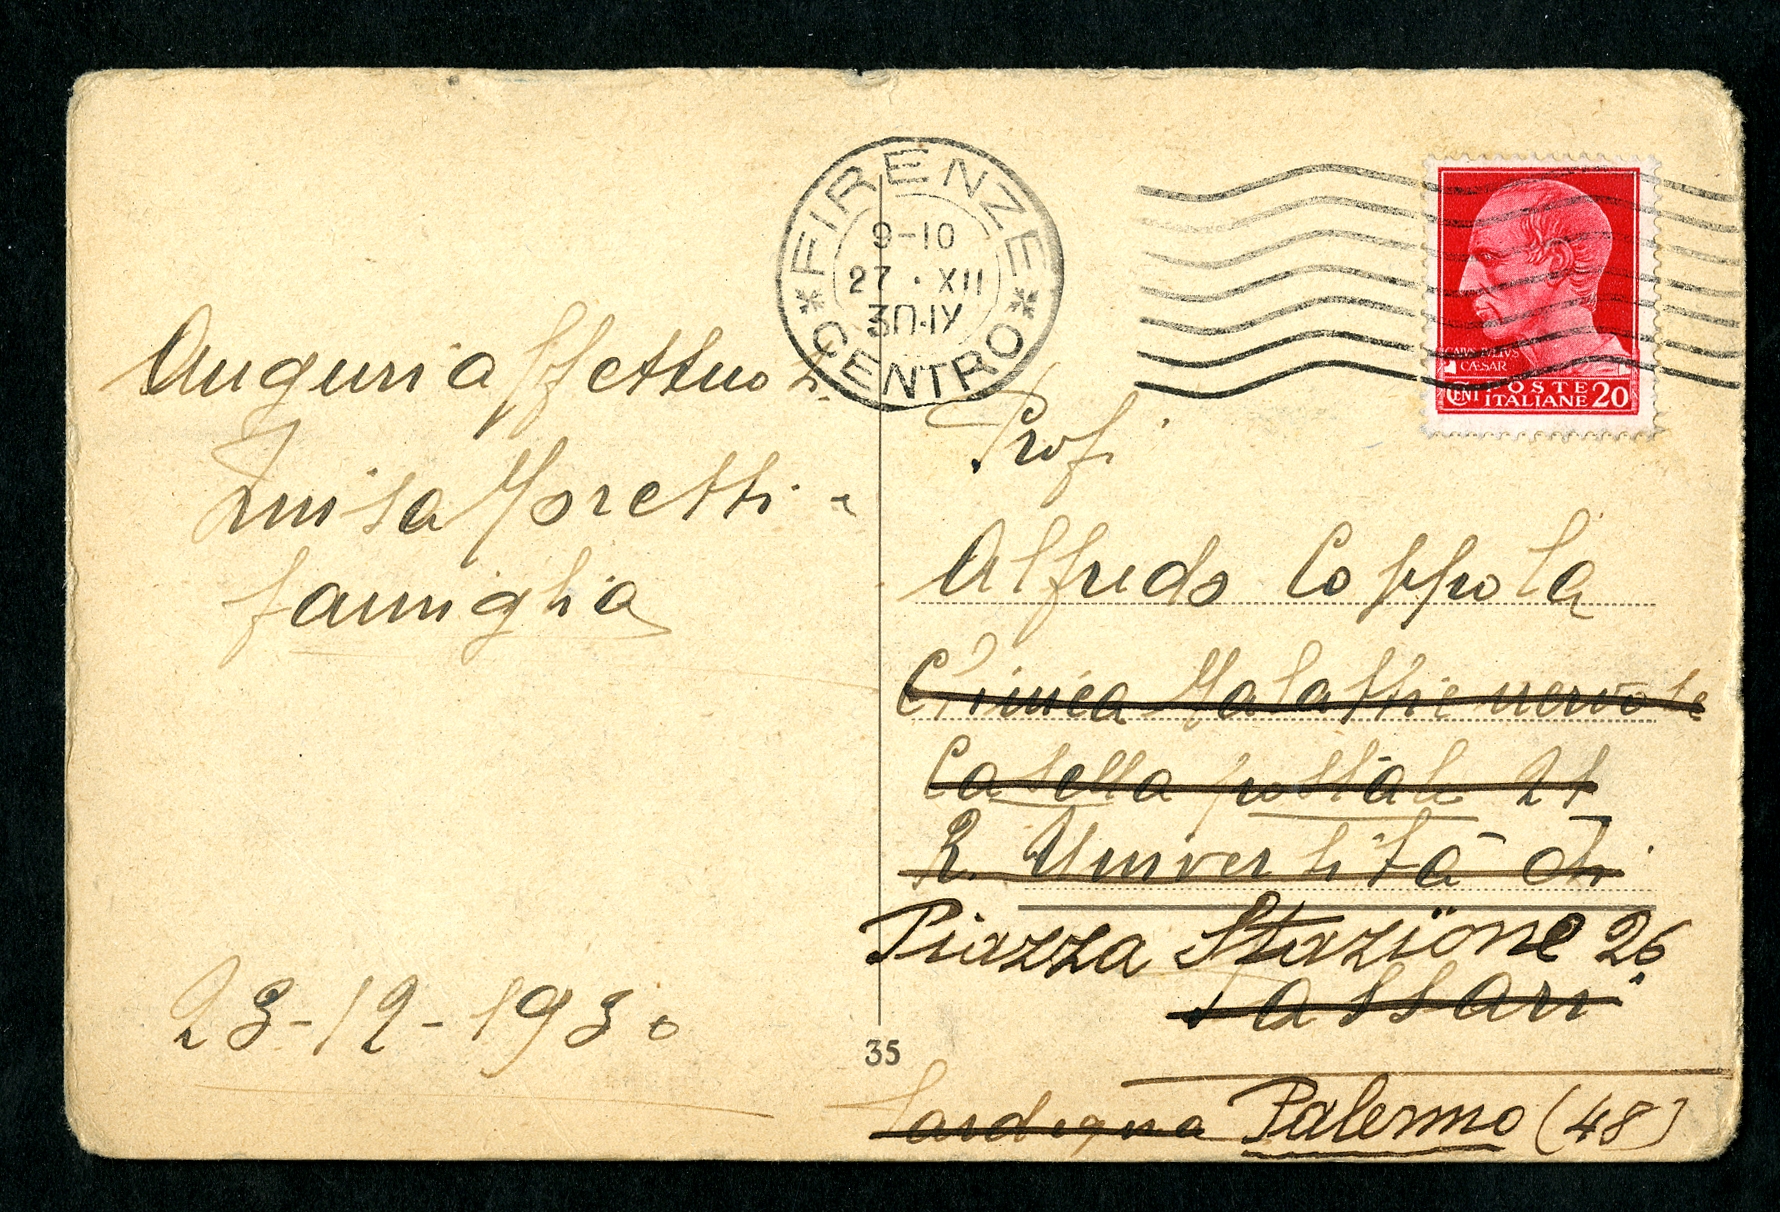 Auguri affettuosi
Luisa Moretti e
famiglia
23-12-1930
FIRENZE
9-10
27 · XII
30·IX
CENTRO
CAIVS IVLIVS
CÆSAR
CENT 20
POSTE
ITALIANE
Prof.
Alfredo Coppola
Clinica Malattie nervose
Casella postale 21
R. Università di
Piazza Stazione 26
Sassari
35
Sardegna Palermo (48)